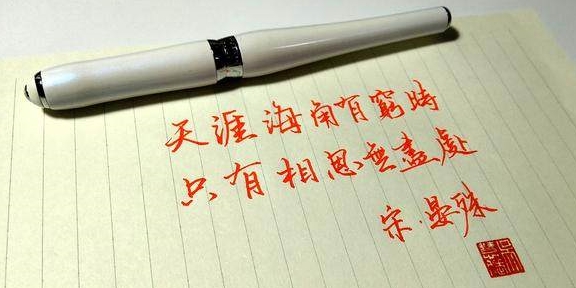 天涯海角有窮時
只有相思無盡處
宋·晏殊